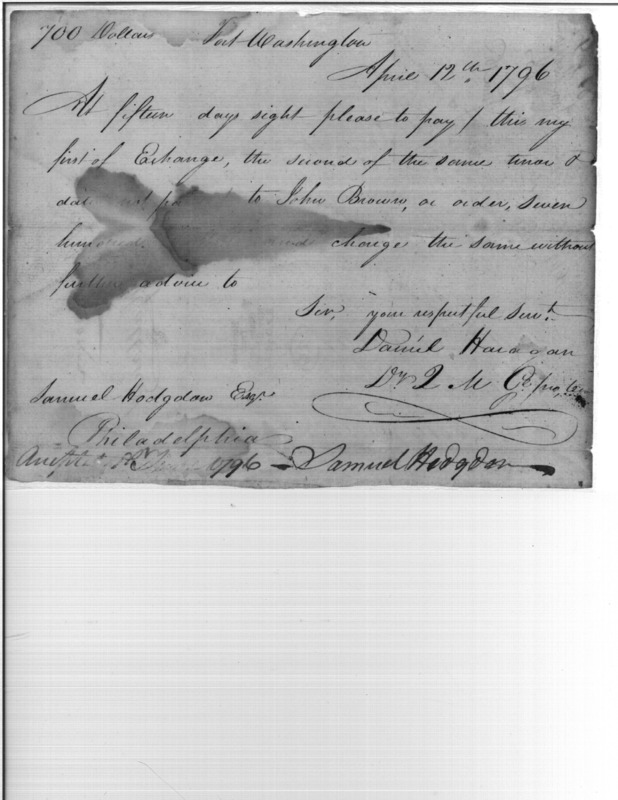 700 Dollars Fort Washington
April 12th 1796
At fifteen days sight please to pay / this my
first of Exchange, the second of the same tenor &
to John Brown, or order, seven
hundred change the same without
further advice to
Sir, your respectful Servt.
Daniel Haragan
D Q M G
Samuel Hodgdon Esqr.
Philadelphia
1796 - Samuel Hodgdon